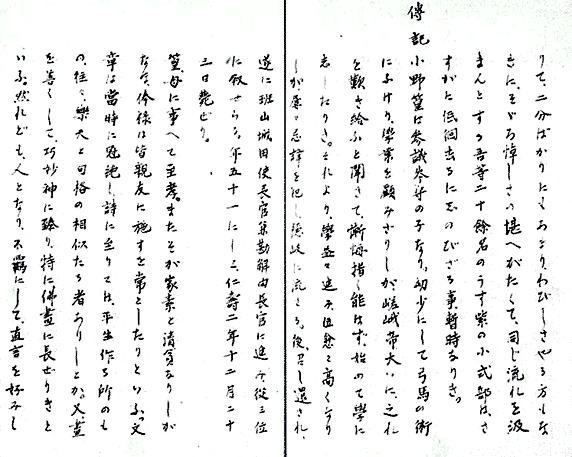 りて、二分ばかりにもあとり、わびしさやる方もな
きに、そゞろ悼しさの堪へがたくて、同じ流れを汲
まんとする吾等二十餘名のうす紫の小式部は、さ
すがに低徊去るに忍のびざる事暫時なりき。
傳記
小野篁は參議岑守の子なり。幼少にして弓馬の術
にふけり、學業を顧みざりしが嵯峨帝大いに之れ
を歎き給ふと聞きて、慚悔措く能はず、始めて學に
志したりき。それより、學益々進み、位愈々高くなり
しが、屢々忌諱を犯し隱岐に流さる。後、召し還され、
遂に班山城田使長官兼勘解由長官に進み、從三位
に叙せらる。年五十一にして、仁壽二年十二月二十
三日薨せり。
篁母に事へて至孝。またその家素と清貧なりしが
なほ俸祿は皆親友に施すを常としたりといふ。文
章は當時に冠絶し、詩に至りては、平生作る所のも
の、往々樂天と句格の相似たる者ありしとか。又、畫
を善くして、巧妙神に臻り、特に佛畫に長ぜりきと
いふ。然れども、人となり、不羈にして、直言を好みし